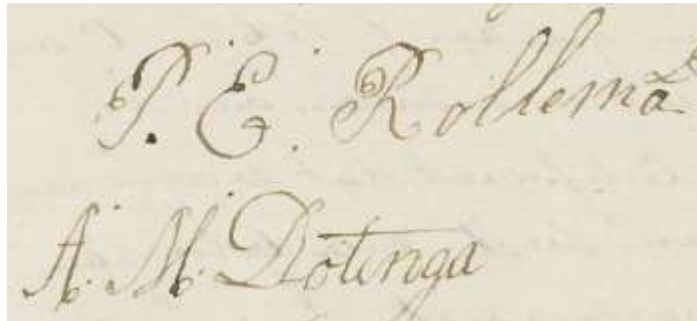 P. E. Rollema
A. M. Dotinga